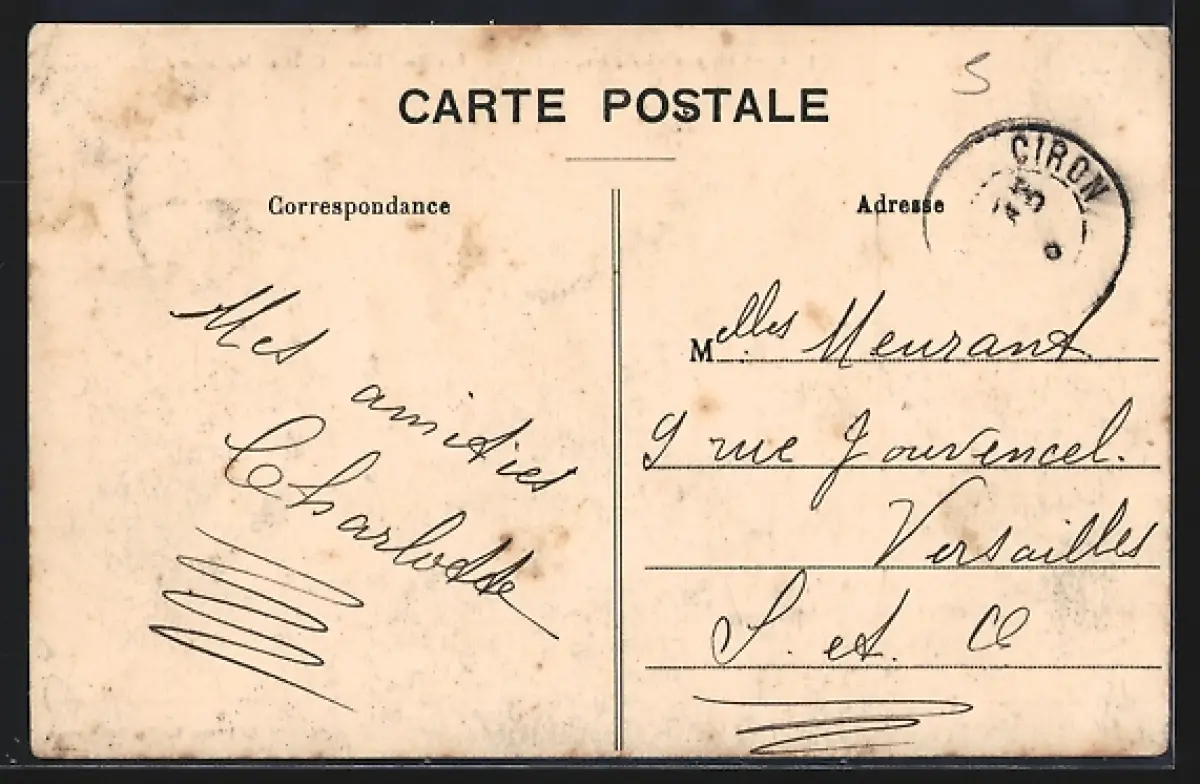 S
CARTE POSTALE
CIRON
Correspondance
Adresse
Mes
amitiés
Charlotte
Melles Meurant
9 rue Jouvencel.
Versailles
S. et. O